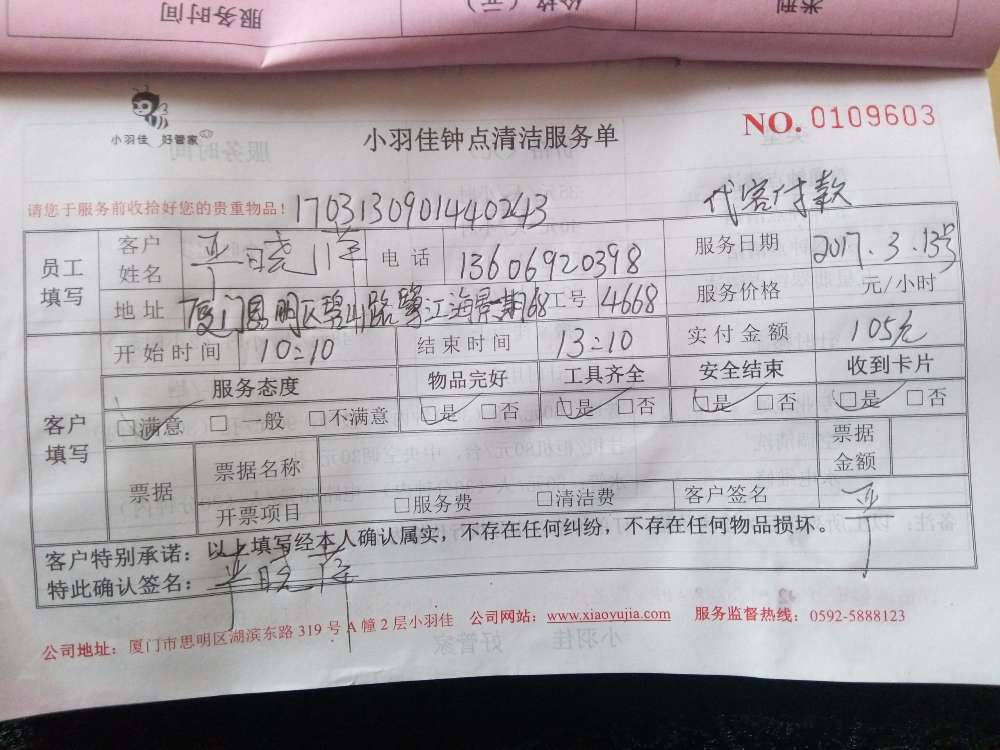 服务时间 价格（元） 类别
小羽佳 好管家
小羽佳钟点清洁服务单
NO. 0109603
请您于服务前收拾好您的贵重物品！ 170313090144 0243 代客付款
员工填写 客户姓名 电话 13606920398 服务日期 2017.3.13号
地址 厦门思明区碧山路鹭江海景一期68 工号 4668 服务价格 元/小时
客户填写 开始时间 10:10 结束时间 13:10 实付金额 105元
服务态度 物品完好 工具齐全 安全结束 收到卡片
□满意 □一般 □不满意 □是 □否 □是 □否 □是 □否 □是 □否
票据 票据名称 票据金额
开票项目 □服务费 □清洁费 客户签名
客户特别承诺：以上填写经本人确认属实，不存在任何纠纷，不存在任何物品损坏。
特此确认签名：
公司地址：厦门市思明区湖滨东路 319 号 A 幢 2 层小羽佳 公司网站：www.xiaoyujia.com 服务监督热线：0592-5888123